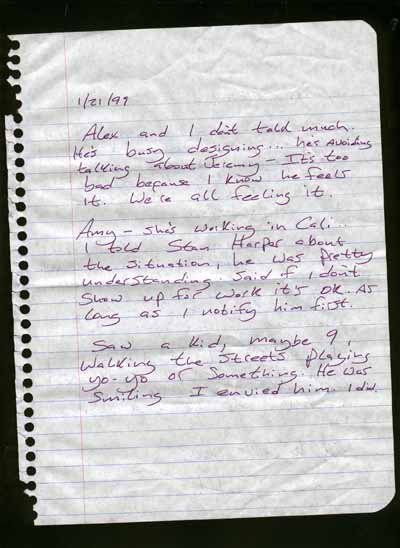 1/21/99
Alex and I don't told much.
He's busy designing... he's avoiding
talking about Jeremy - It's too
bad because I know he feels
it. We're all feeling it.
Amy - she's working in Cali...
I told Stan Harper about
the situation, he was pretty
understanding. Said if I don't
show up for work it's OK as
long as I notify him first.
Saw a kid, maybe 9,
walking the streets playing
yo-yo or something. He was
smiling I envied him. I did.